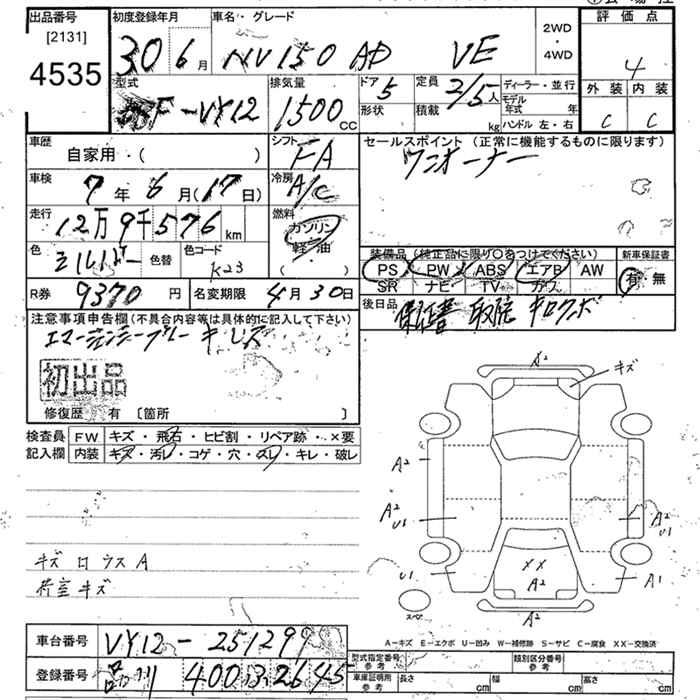 出品番号
[2131]
4535
初度登録年月
30 6月
車名・グレード
NV150 AD VE
2WD
・
4WD
評価点
4
外装 内装
C C
型式
F-VY12
排気量
1500 CC
ドア 5
形状
定員 2/5人
積載 kg
ディーラー・並行
モデル年式 年
ハンドル 左・右
車歴
自家用・( )
シフト
FA
セールスポイント (正常に機能するものに限ります)
ワンオーナー
車検
7年 6月(17日)
冷房
A/C
走行
12万9千576km
燃料
ガソリン
軽油
( ・ )
色
シルバー
色替
色コード
K23
装備品(純正品に限り○をつけてください)
PS PW ABS エアB AW
SR ナビ TV カワ
新車保証書
有・無
R券 9370円
名変期限 4月30日
後日品
保証書 取説 キロクボ
注意事項申告欄(不具合内容等は具体的に記入して下さい)
エマージェンシーブレーキ レス
初出品
修復歴 有 〔箇所 〕
検査員記入欄
FW キズ・飛石・ヒビ割・リペア跡・×要
内装 キズ・汚レ・コゲ・穴・スレ・キレ・破レ
キズ
A2
A2
A2
A2
U1
U1
U1
XX
A2
A1
A2
スペア
キズ ロ ウス A
荷室 キズ
A-キズ E-エクボ U-凹み W-補修跡 S-サビ C-腐食 XX-交換済
車台番号
VY12-251299
登録番号
品川 400 ス 2645
型式指定番号
参考
類別区分番号
参考
車庫証明用
参考
長さ cm
幅 cm
高さ cm